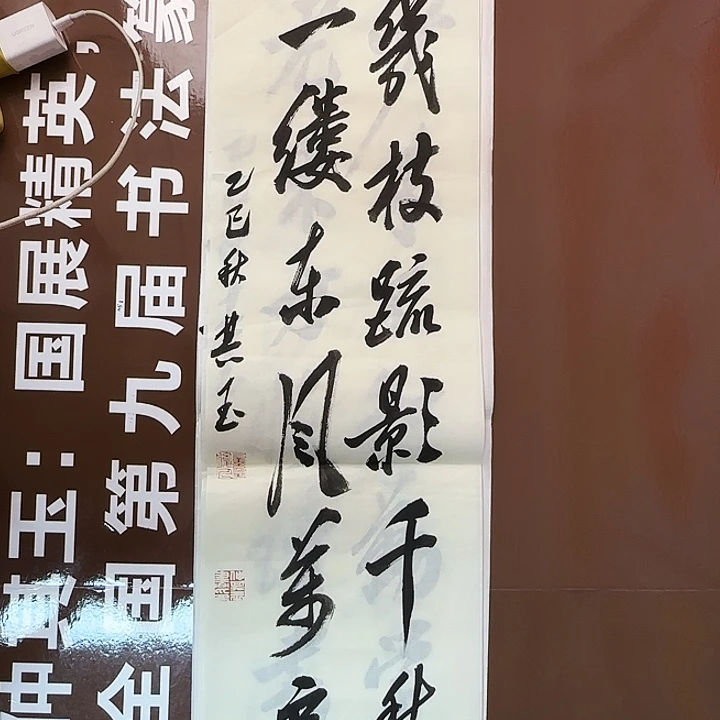 幾枝疏影千秋
一缕东风万
乙巳秋其玉
仲其玉：国展精英，
全国第九届书法篆